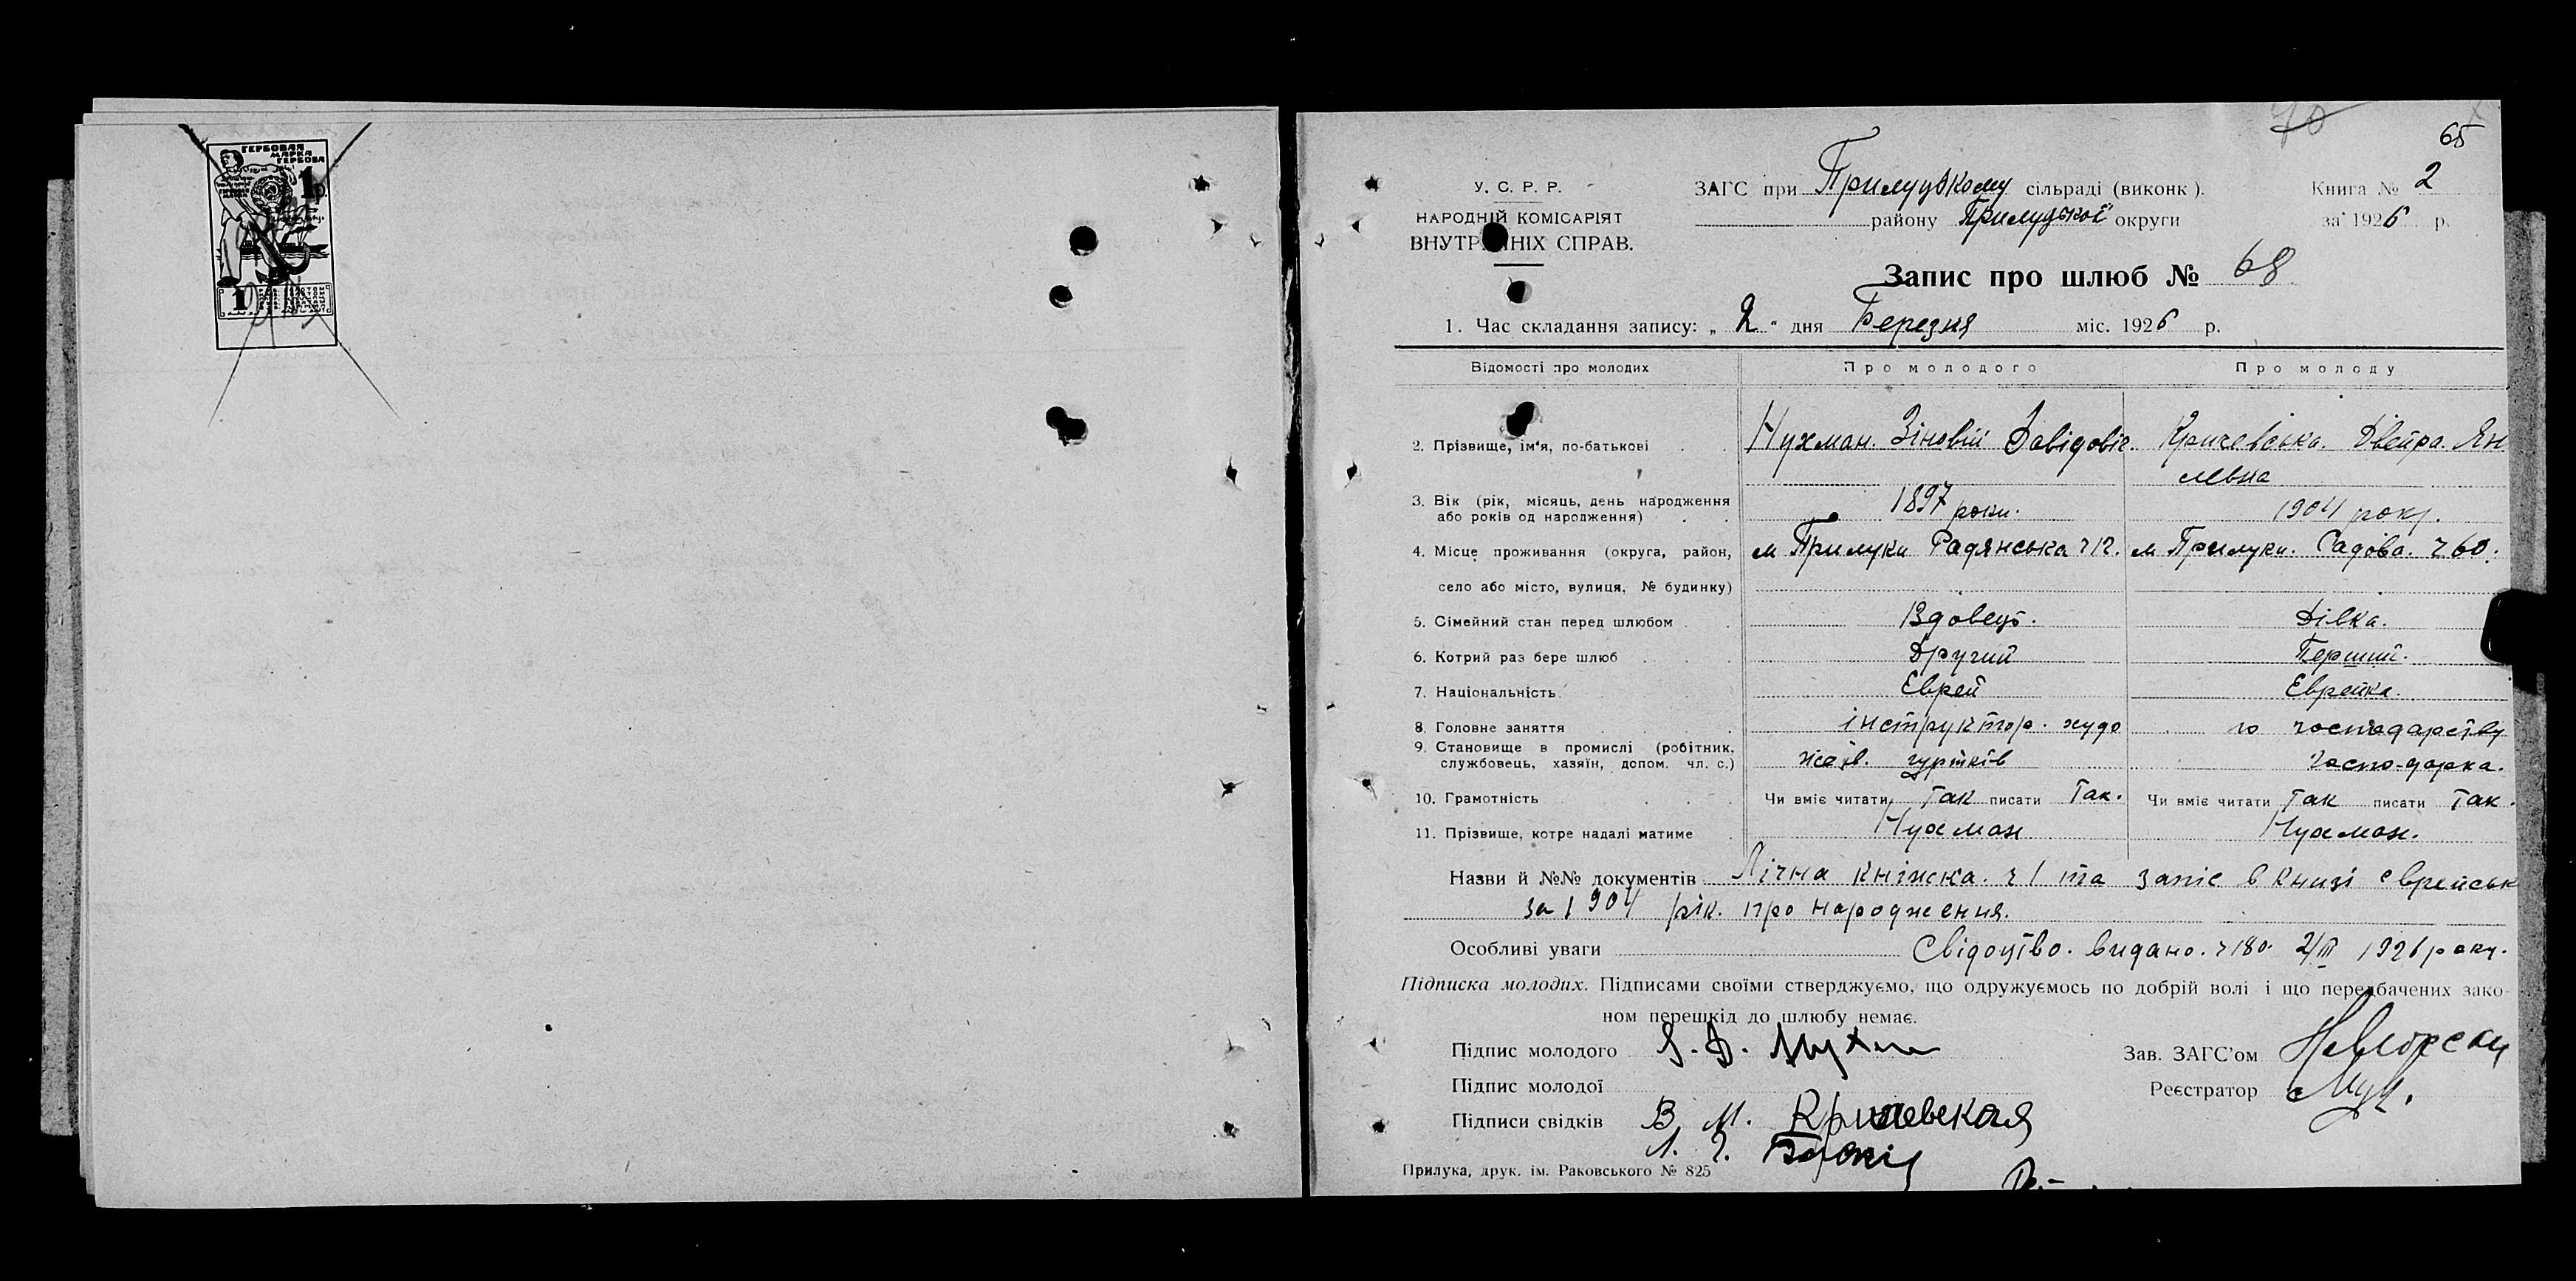 ГЕРБОВАЯ
МАРКА
ГЕРБОВА
1 р.
1
65
У. С. Р. Р.
НАРОДНІЙ КОМІСАРІЯТ
ВНУТР НІХ СПРАВ.
ЗАГС при Прилуцькому сільраді (виконк).
району Прилуцької округи
Книга № 2
за 1926 р.
Запис про шлюб № 68
1. Час складання запису: „ 2 " дня Березня міс. 1926 р.
Відомості про молодих Про молодого Про молоду
2. Прізвище, ім'я, по-батькові Нухман. Зіновій Давідовіч. Кричевська. Двейра. Ян
левна
3. Вік (рік, місяць, день народження 1897 роки. 1904 року.
або років од народження)
4. Місце проживання (округа, район, м Прилуки Радянська ч 12. м Прилуки. Садова. ч 60.
село або місто, вулиця, № будинку)
5. Сімейний стан перед шлюбом Вдовець. Дівка.
6. Котрий раз бере шлюб Другий Перший.
7. Національність Еврей Еврейка.
8. Головне заняття інструктор. худо по господарству
9. Становище в промислі (робітник, жев. гуртків Госпо-дарка.
службовець, хазяїн, допом. чл. с.)
10. Грамотність Чи вміє читати Так писати Так. Чи вміє читати Так писати Так.
11. Прізвище, котре надалі матиме Нухман Нухман.
Назви й №№ документів Лічна кніжка. ч 1 та запіс в книзі єврейськ
за 1904 рік. про народження.
Особливі уваги Свідоцтво. видано. ч 180. 2/III 1926 року.
Підписка молодих. Підписами своїми стверджуємо, що одружуємось по добрій волі і що передбачених зако-
ном перешкід до шлюбу немає.
Підпис молодого
Зав. ЗАГС'ом
Підпис молодої
Реєстратор
Підписи свідків В. М. Кричевская
Прилука, друк. ім. Раковського № 825